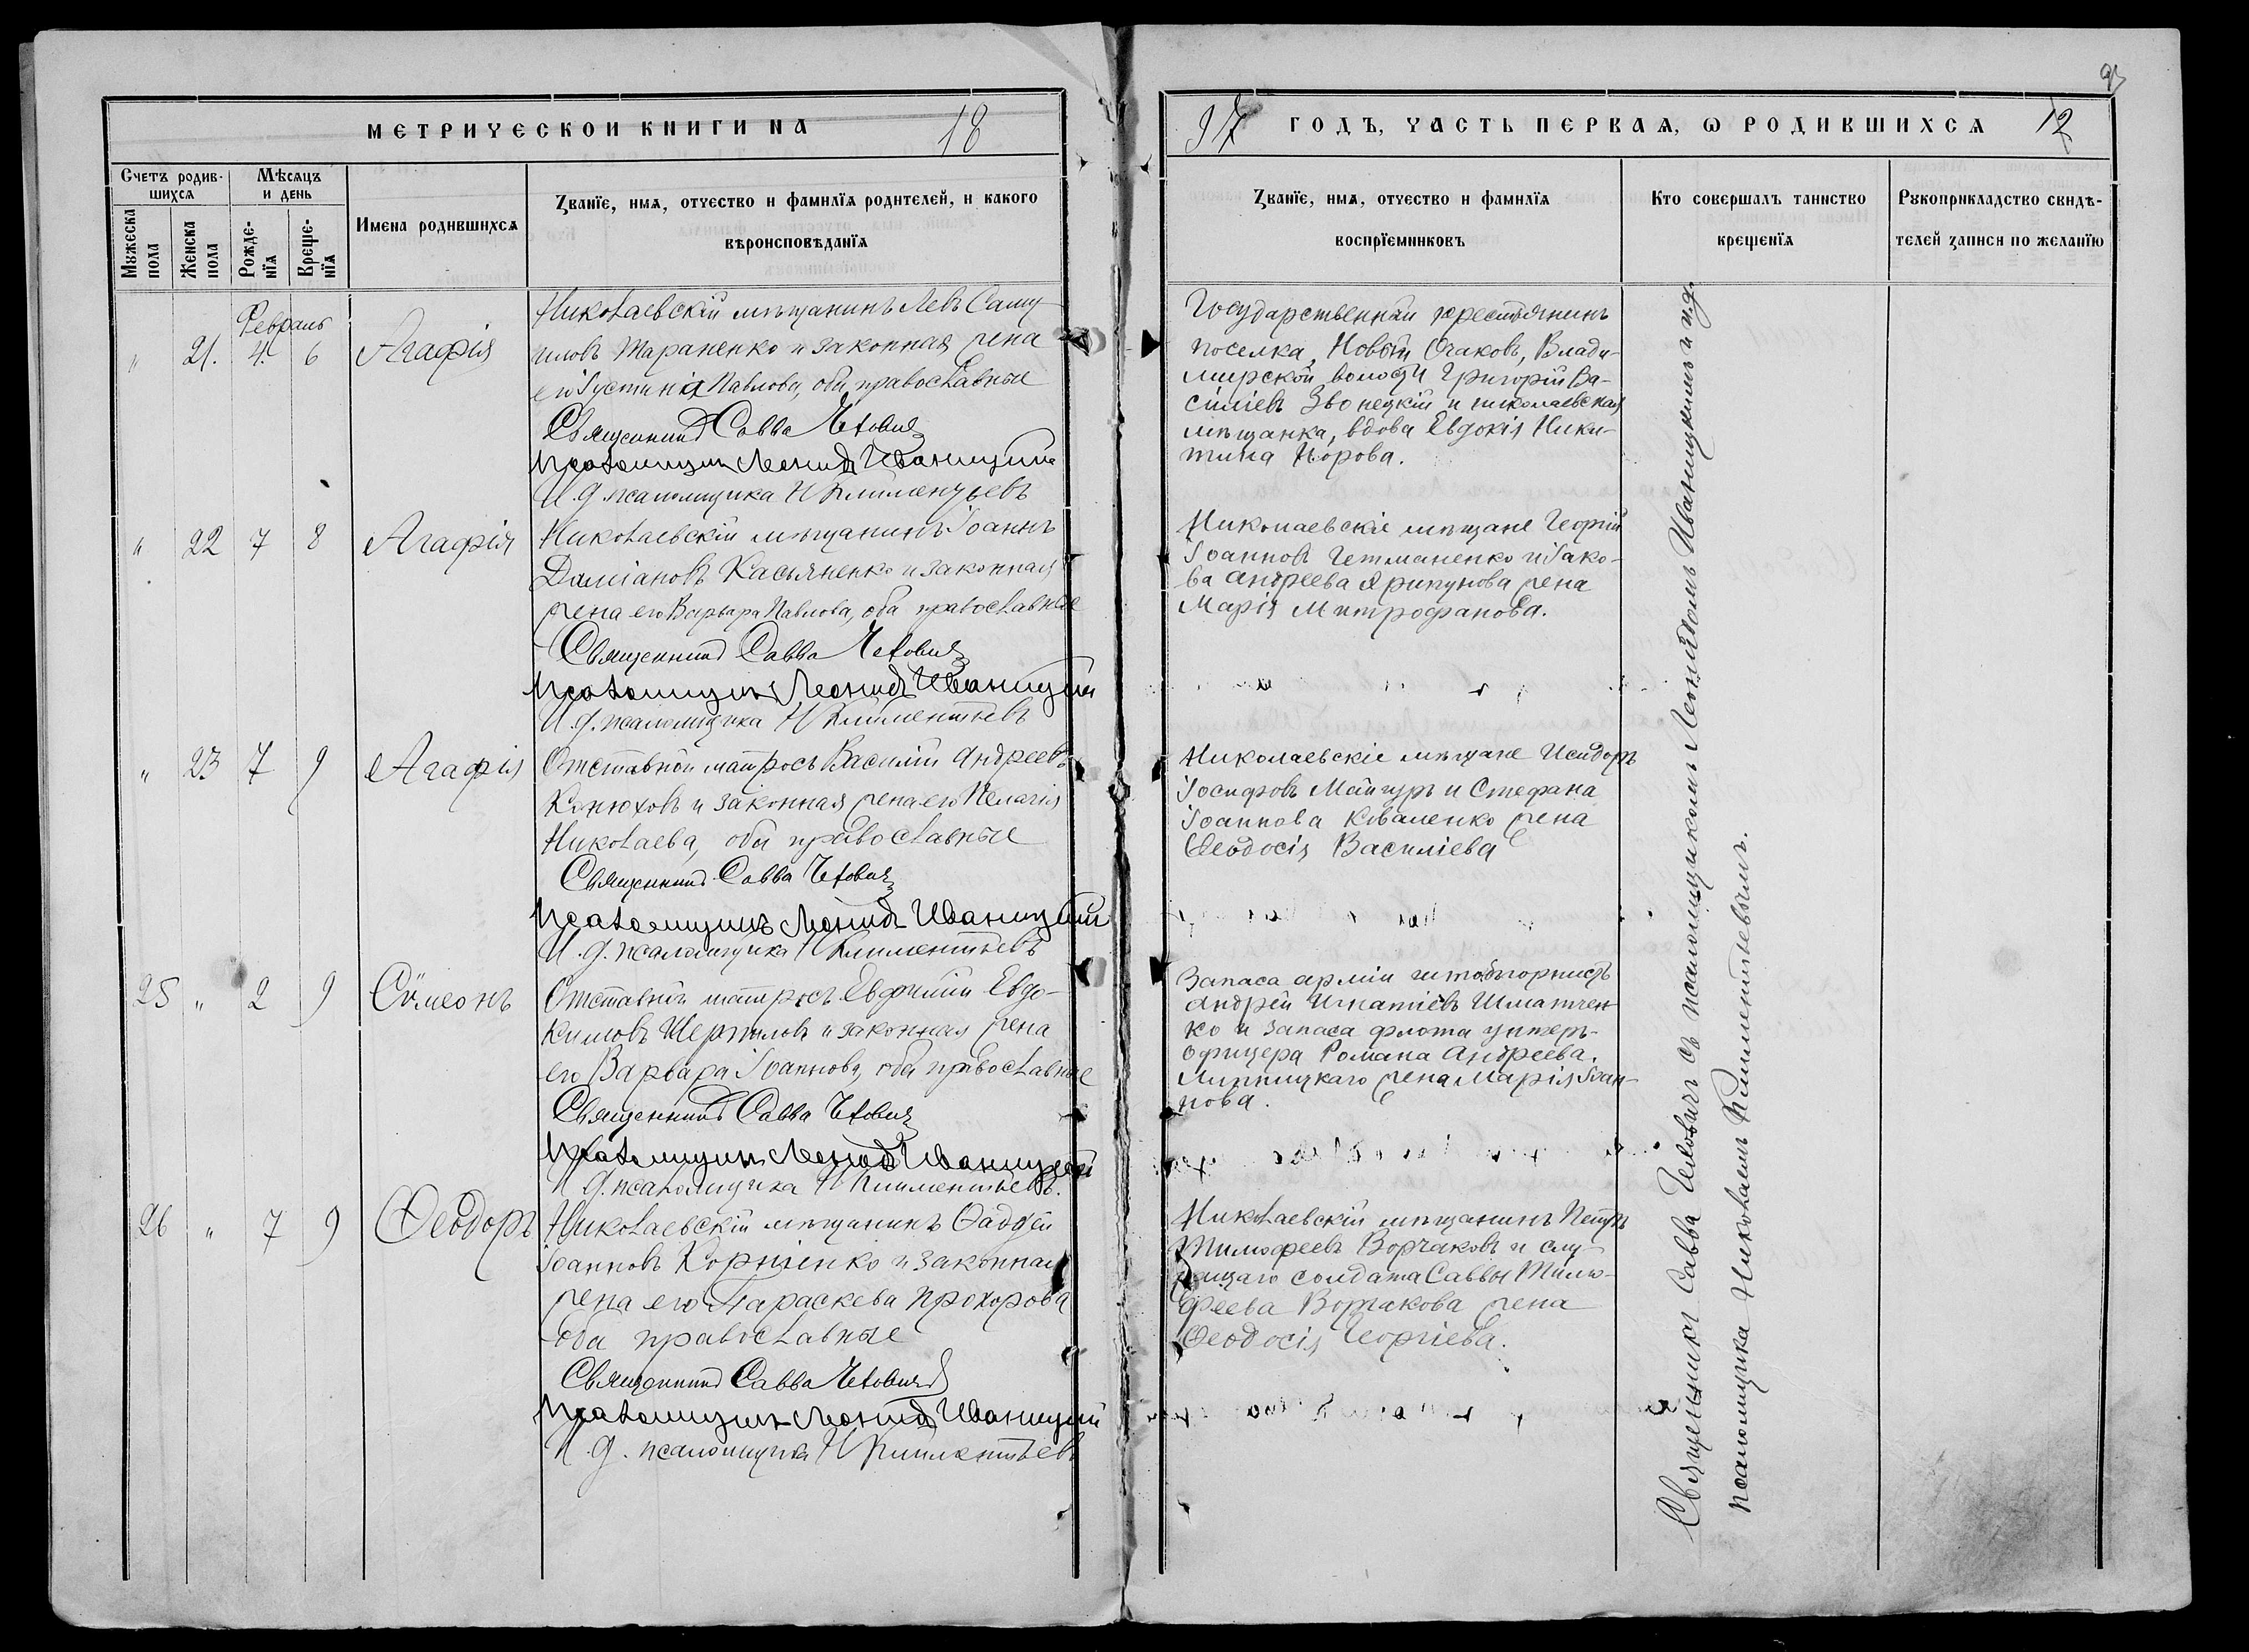 МЕТРИЧЕСКОЙ КНИГИ НА 18
97 ГОДЪ, ЧАСТЬ ПЕРВАЯ, Ѡ РОДИВШИХСЯ 12
Счетъ родив-
шихся
Мѣсяцъ
и день
Мужеска
пола
Женска
пола
Рожде-
нїя
Креще-
нїя
Имена родившихся
Званїе, имя, отчество и фамилїя родителей, и какого
вѣроисповѣданїя
Званїе, имя, отчество и фамилїя
воспрїемниковъ
Кто совершалъ таинство
крещенїя
Рукоприкладство свидѣ-
телей записи по желанїю
Февраль
" 21. 4. 6 Агафія
Николаевскій мѣщанинъ Левъ Саму
иловъ Тараненко и законная жена
его Іустинія Павлова, оба православные
Священникъ Савва
Псаломщикъ Леонидъ Иваницкій
И. д. псаломщика Н Климентьевъ
Государственный крестьянинъ
поселка, Новый Очаковъ, Влади-
мирской волости Григорій Ва-
силіевъ Звонецкій и николаевская
мѣщанка, вдова Евдокія Ники-
тина
" 22 7 8 Агафія
Николаевскій мѣщанинъ Іоаннъ
Даміановъ Касьяненко и законная
жена его Варвара Павлова, оба православные
Священникъ Савва
Псаломщикъ Леонидъ Иваницкій
И. д. псаломщика Н Климентьевъ
Николаевскіе мѣщане Георгій
Іоанновъ Гетманенко и Іако-
ва Андреева жена
Марія Митрофанова.
" 23 7 9 Агафія
Отставной матросъ Василій Андреевъ
Конюховъ и законная жена его Пелагія
Николаева, оба православные
Священникъ Савва
Псаломщикъ Леонидъ Иваницкій
И. д. псаломщика Н Климентьевъ
Николаевскіе мѣщане Исидоръ
Іосифовъ Майгуръ и Стефана
Іоаннова Коваленко жена
Ѳеодосія Василіева
25 " 2 9 Сѵмеонъ
Отставной матросъ Евфимій Евдо-
кимовъ и законная жена
его Варвара Іоаннова, оба православные
Священникъ Савва
Псаломщикъ Леонидъ Иваницкій
И. д. псаломщика Н Климентьевъ.
Запаса арміи штабъ-горнистъ
Андрей Игнатіевъ Шматчен
ко и запаса флота унтеръ-
офицера Романа Андреева
Липницкаго жена Марія Іоан-
нова.
26 " 7 9 Ѳеодоръ
Николаевскій мѣщанинъ Ѳаддей
Іоанновъ Корніенко и законная
жена его Параскева Прохорова
оба православные
Священникъ Савва
Псаломщикъ Леонидъ Иваницкій
И. д. псаломщика Н Климентьевъ
Николаевскій мѣщанинъ Петръ
Тимофеевъ Ворчаковъ и слу-
жащаго солдата Саввы Тимо-
феева Ворчакова жена
Ѳеодосія Георгіева.
Священникъ Савва съ псаломщикомъ Леонидомъ Иваницкимъ и и.д.
псаломщика Николаемъ Климентьевымъ.